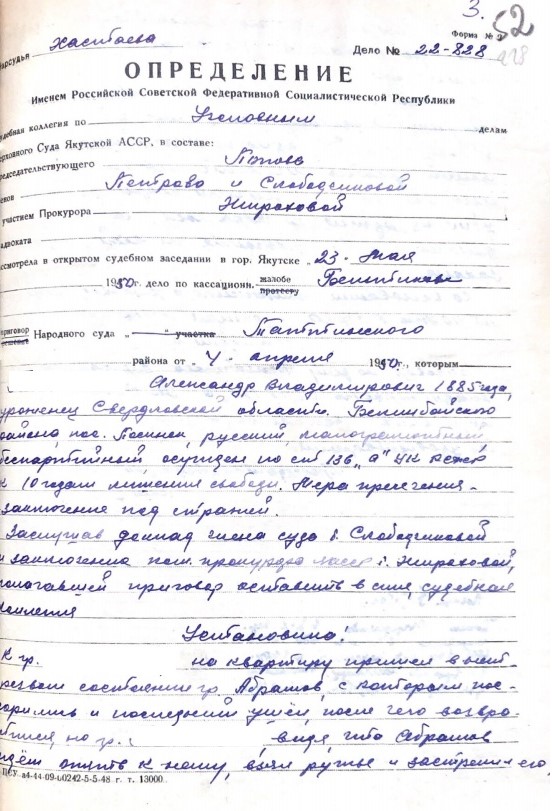 3.
52
Форма № 2
928
Нарсудья Хаситаева
Дело № 22-828
ОПРЕДЕЛЕНИЕ
Именем Российской Советской Федеративной Социалистической Республики
судебная коллегия по Уголовным делам
ерховного Суда Якутской АССР, в составе:
редседательствующего Попова
енов Петрова и Слободчиковой
участием Прокурора Жираховой
двоката
ссмотрела в открытом судебном заседании в гор. Якутске „23" мая
1950г. дело по кассационн. жалобе протесту
приговор решение Народного суда „ " участка Таттинского
района от 4 апреля 1950г., которым
Александр Владимирович 1885 года,
уроженец Свердловской области
района, пос. русский, малограмотный,
беспартийный, осужден по ст 136 „а" УК РСФСР
к 10 годам лишения свободы. Мера пресечения -
заключение под стражей.
Заслушав доклад члена суда т. Слободчиковой
и заключение пом. прокурора ЯАССР т. Жираховой,
полагавшей приговор оставить в силе, судебная
коллегия
Установила:
К гр. на квартиру пришел в нет-
резвом состоянии гр. Абрашов, с которым пос-
сорились и последний ушел, после чего возвра-
тился, но гр. видя, что Абрашов
идёт опять к нему, взял ружье и застрелил его.
ЦСУ а4-44-09-00242-5-5-48 г. т. 13000.